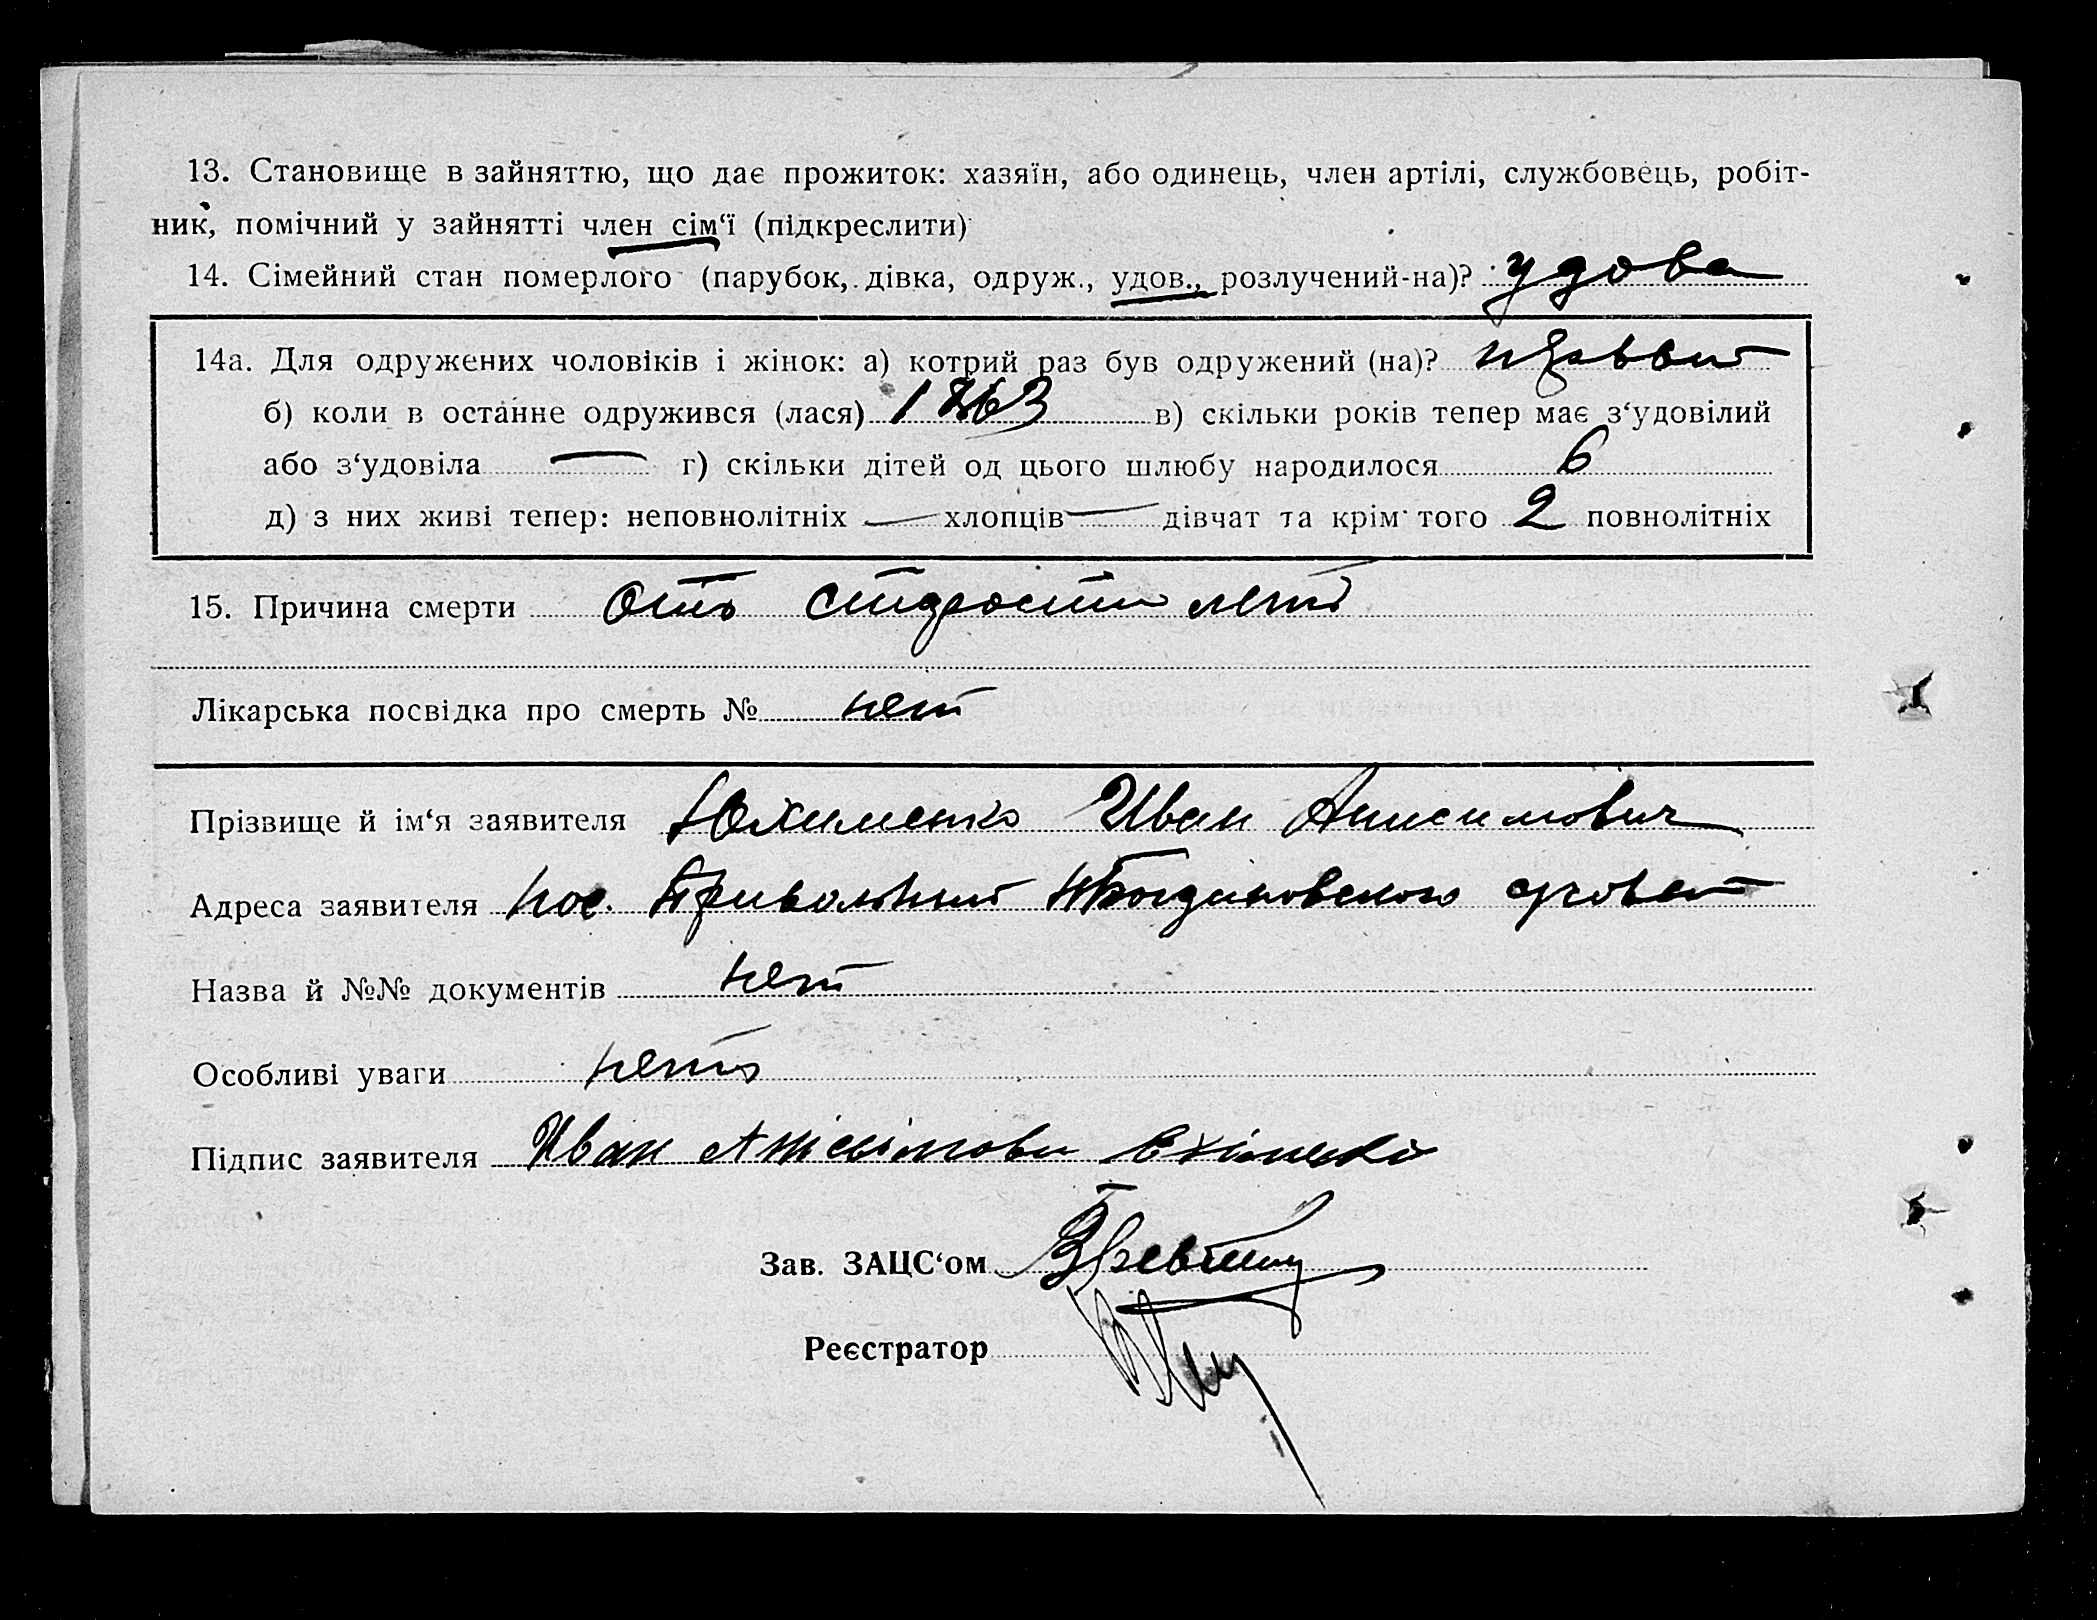 13. Становище в зайняттю, що дає прожиток: хазяїн, або одинець, член артілі, службовець, робіт-
ник, помічний у зайнятті член сім‘ї (підкреслити)
14. Сімейний стан померлого (парубок, дівка, одруж., удов., розлучений-на)? удова
14а. Для одружених чоловіків і жінок: а) котрий раз був одружений (на)? первый
б) коли в останне одружився (лася) 1863 в) скільки років тепер має з‘удовілий
або з‘удовіла — г) скільки дітей од цього шлюбу народилося 6
д) з них живі тепер: неповнолітніх — хлопців — дівчат та крім того 2 повнолітніх
15. Причина смерти отъ старости летъ
Лікарська посвідка про смерть № нет
Прізвище й ім‘я заявителя Юхименко Иван Анисимович
Адреса заявителя пос. Привольный Богдановского
Назва й №№ документів нет
Особливі уваги нетъ
Підпис заявителя Иван
Зав. ЗАЦС‘ом
Реєстратор